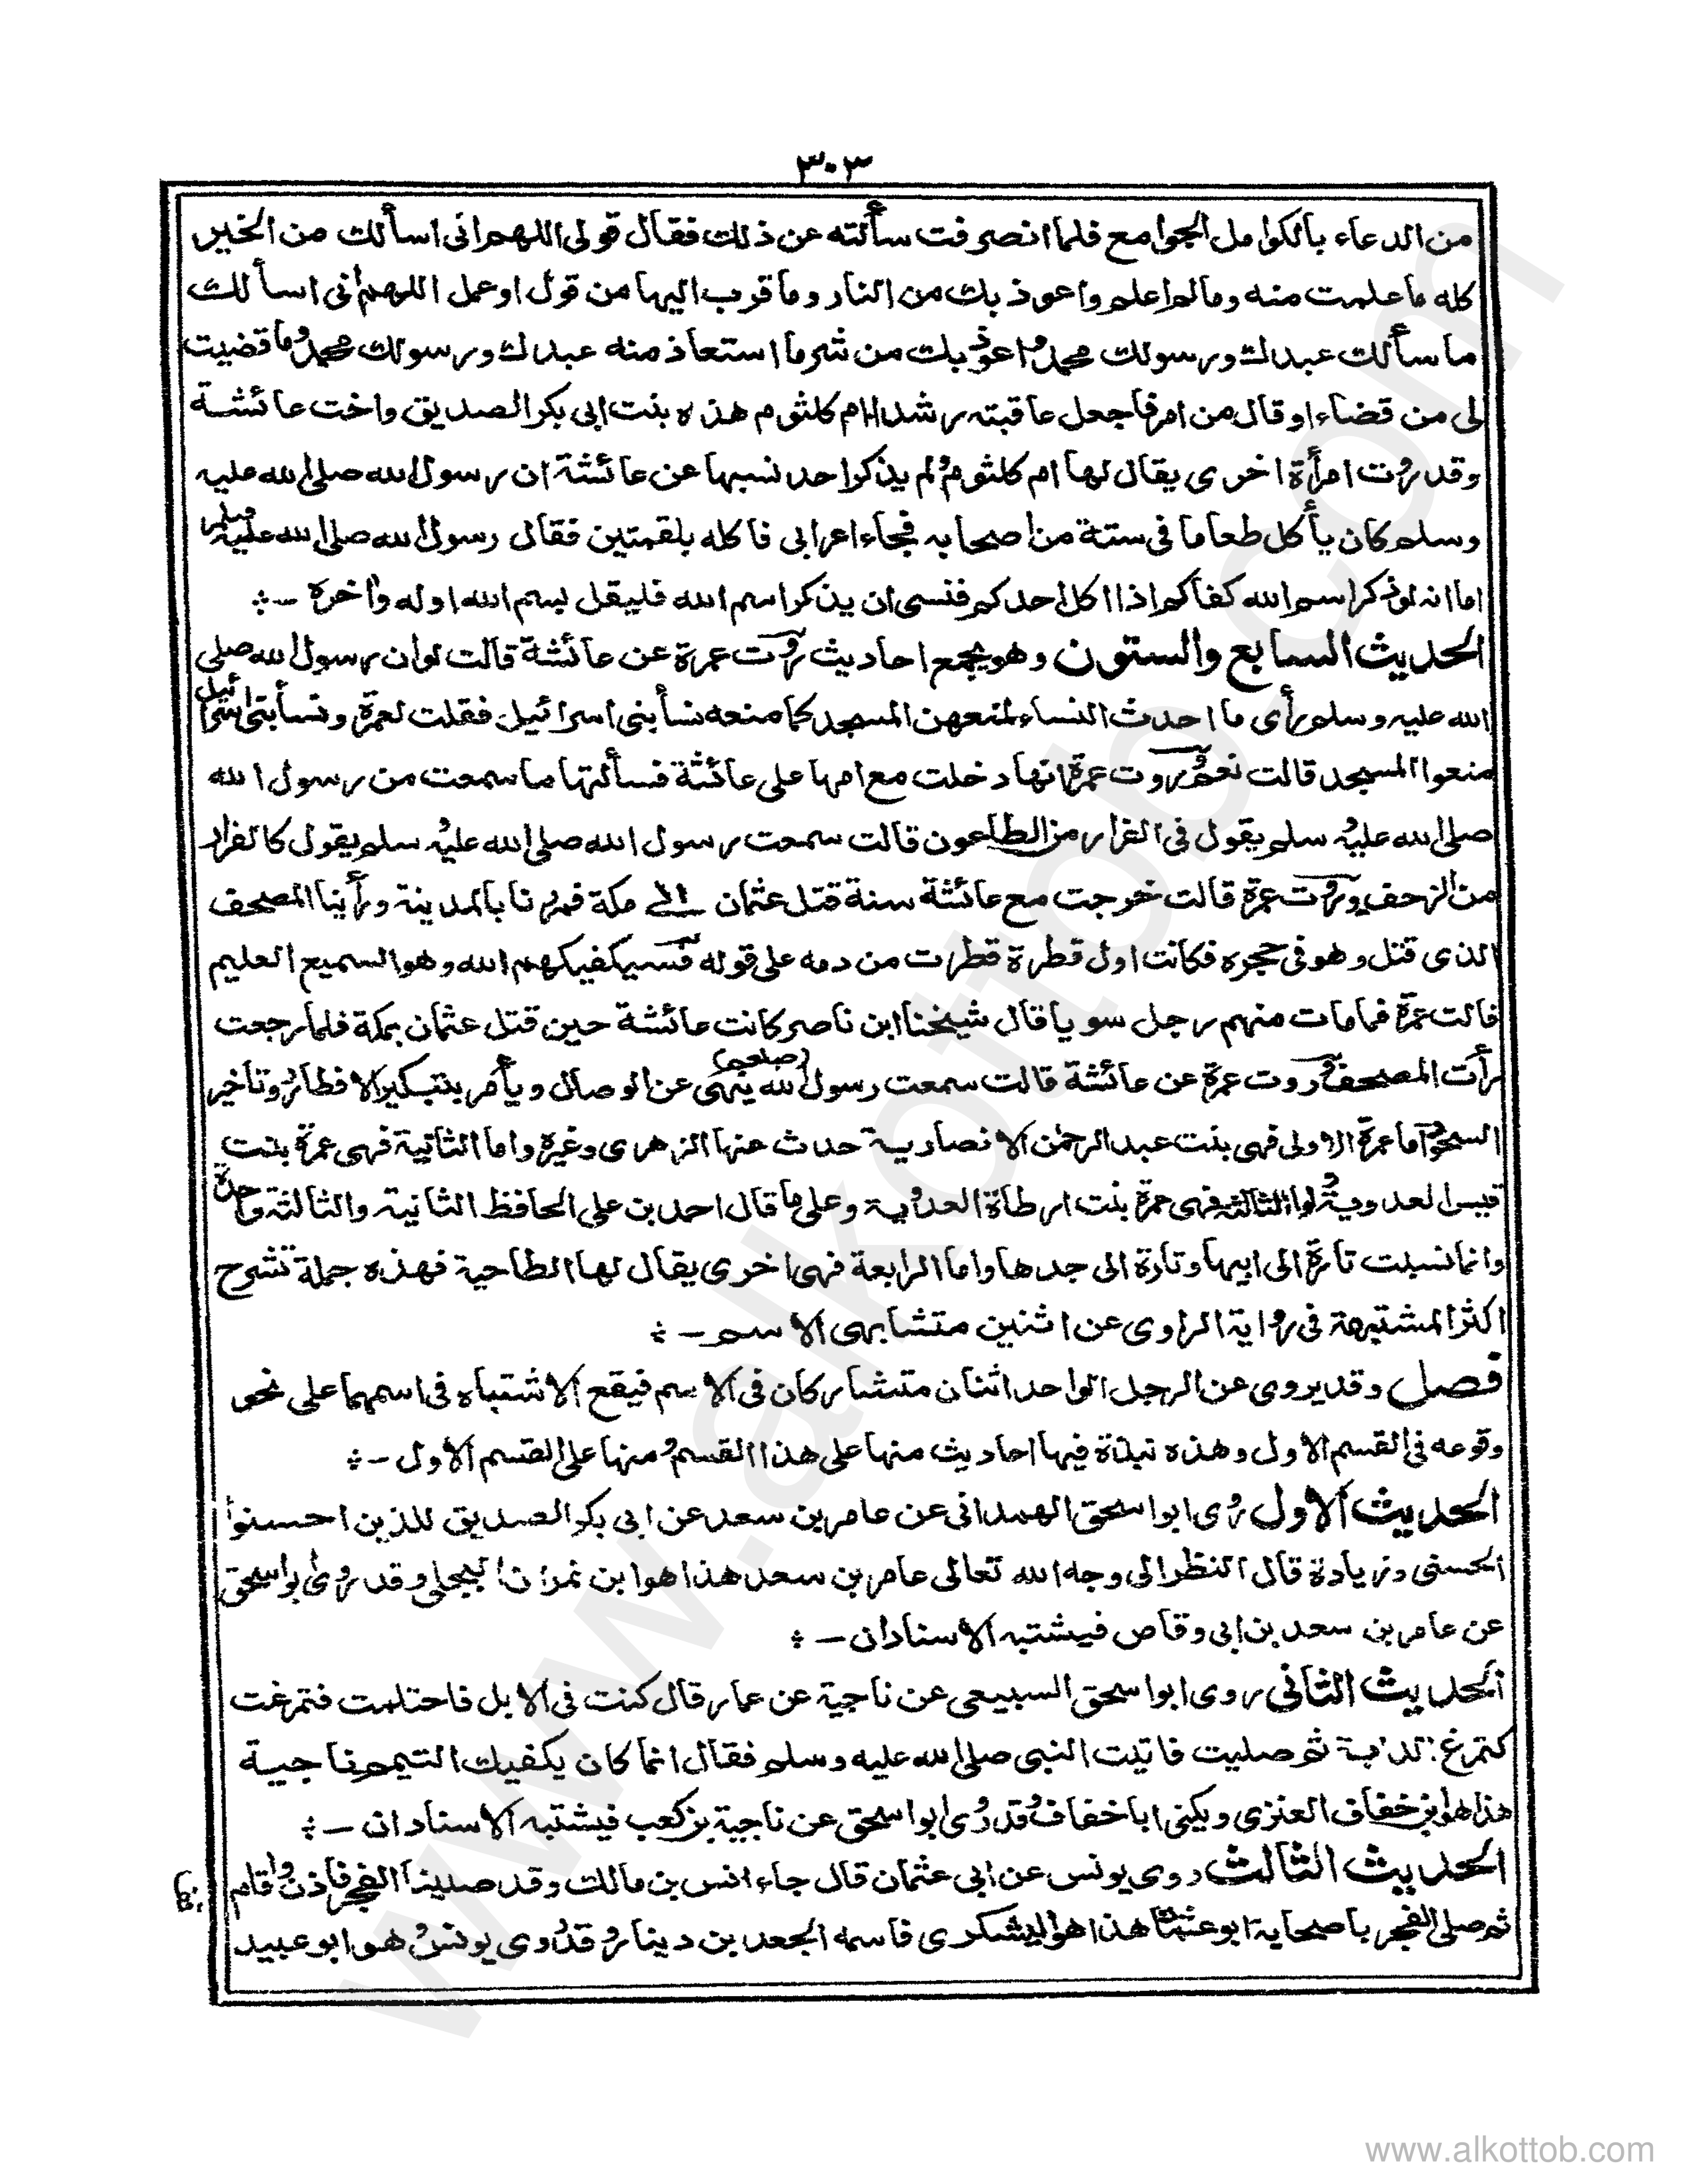 ٣٠٣
من الدعاء بالكوامل الجوامع فلما انصرفت سألته عن ذلك فقال قولى اللهم انى اسألك من الخير
كله ما علمت منه وما لم اعلم واعوذ بك من النار وما قرب اليها من قول او عمل اللهم انى اسألك
ما سألك عبدك ورسولك محمد واعوذ بك من شر ما استعاذ منه عبدك ورسولك محمد وما قضيت
لى من قضاء او قال من امر فاجعل عاقبته رشدا ام كلثوم هذه بنت ابى بكر الصديق واخت عائشة
وقد روت امرأة اخرى يقال لها ام كلثوم ولم يذكر احد نسبها عن عائشة ان رسول الله صلى الله عليه
وسلم كان يأكل طعاما فى ستة من اصحابه فجاء اعرابى فاكله بلقمتين فقال رسول الله صلى الله عليه وسلم
اما انه لو ذكر اسم الله كفاكم اذا اكل احدكم فنسى ان يذكر اسم الله فليقل بسم الله اوله واخره
الحديث السابع والستون وهو يجمع احاديث روت عمرة عن عائشة قالت لو ان رسول الله صلى
الله عليه وسلم رأى ما احدث النساء لمنعهن المسجد كما منعه نسأ بنى اسرائيل فقلت لعمرة ونسأ بنى اسرائيل
منعوا المسجد قالت نعم وروت عمرة انها دخلت مع امها على عائشة فسألتها ما سمعت من رسول الله
صلى الله عليه وسلم يقول فى الفرار من الطاعون قالت سمعت رسول الله صلى الله عليه وسلم يقول كالفرار
من الزحف وروت عمرة قالت خرجت مع عائشة سنة قتل عثمان الى مكة فمررنا بالمدينة ورأينا المصحف
الذى قتل وهو فى حجره فكانت اول قطرة قطرت من دمه على قوله فسيكفيكهم الله وهو السميع العليم
قالت عمرة فما مات منهم رجل سويا قال شيخنا ابن ناصر كانت عائشة حين قتل عثمان بمكة فلما رجعت
رأت المصحف وروت عمرة عن عائشة قالت سمعت رسول الله (صلعم) ينهى عن الوصال ويأمر بتبكير الافطار وتاخير
السحور اما عمرة الاولى فهى بنت عبد الرحمن الانصارية حدث عنها الزهرى وغيره واما الثانية فهى عمرة بنت
قيس العدوية واما الثالثة فهى عمرة بنت ارطاة العدوية وعلى ما قال احمد بن على الحافظ الثانية والثالثة واحدة
وانما نسبت تارة الى ابيها وتارة الى جدها واما الرابعة فهى اخرى يقال لها الطاحية فهذه جملة تشرح
اكثر المشتبهة فى رواية الراوى عن اثنين متشابهى الاسم
فصل وقد يروى عن الرجل الواحد اثنان متشاركان فى الاسم فيقع الاشتباه فى اسمهما على نحو
وقوعه فى القسم الاول وهذه نبذة فيها احاديث منها على هذا القسم ومنها على القسم الاول
الحديث الاول روى ابو اسحق الهمدانى عن عامر بن سعد عن ابى بكر الصديق للذين احسنوا
الحسنى وزيادة قال النظر الى وجه الله تعالى عامر بن سعد هذا هو ابن نمران البجلى وقد روى ابو اسحق
عن عامر بن سعد بن ابى وقاص فيشتبه الاسنادان
الحديث الثانى روى ابو اسحق السبيعى عن ناجية عن عمار قال كنت فى الابل فاحتلمت فتمرغت
كتمرغ الدابة ثم صليت فاتيت النبى صلى الله عليه وسلم فقال انما كان يكفيك التيمم ناجية
هذا هو ابن خفاف العنزى ويكنى ابا خفاف وقد روى ابو اسحق عن ناجية بن كعب فيشتبه الاسنادان
الحديث الثالث روى يونس عن ابى عثمان قال جاء انس بن مالك وقد صلينا الفجر فاذن واقام
ثم صلى الفجر باصحابه ابو عثمان هذا هو اليشكرى فاسمه الجعد بن دينار وقد روى يونس هو ابو عبيد
www.alkottob.com
www.alkottob.com